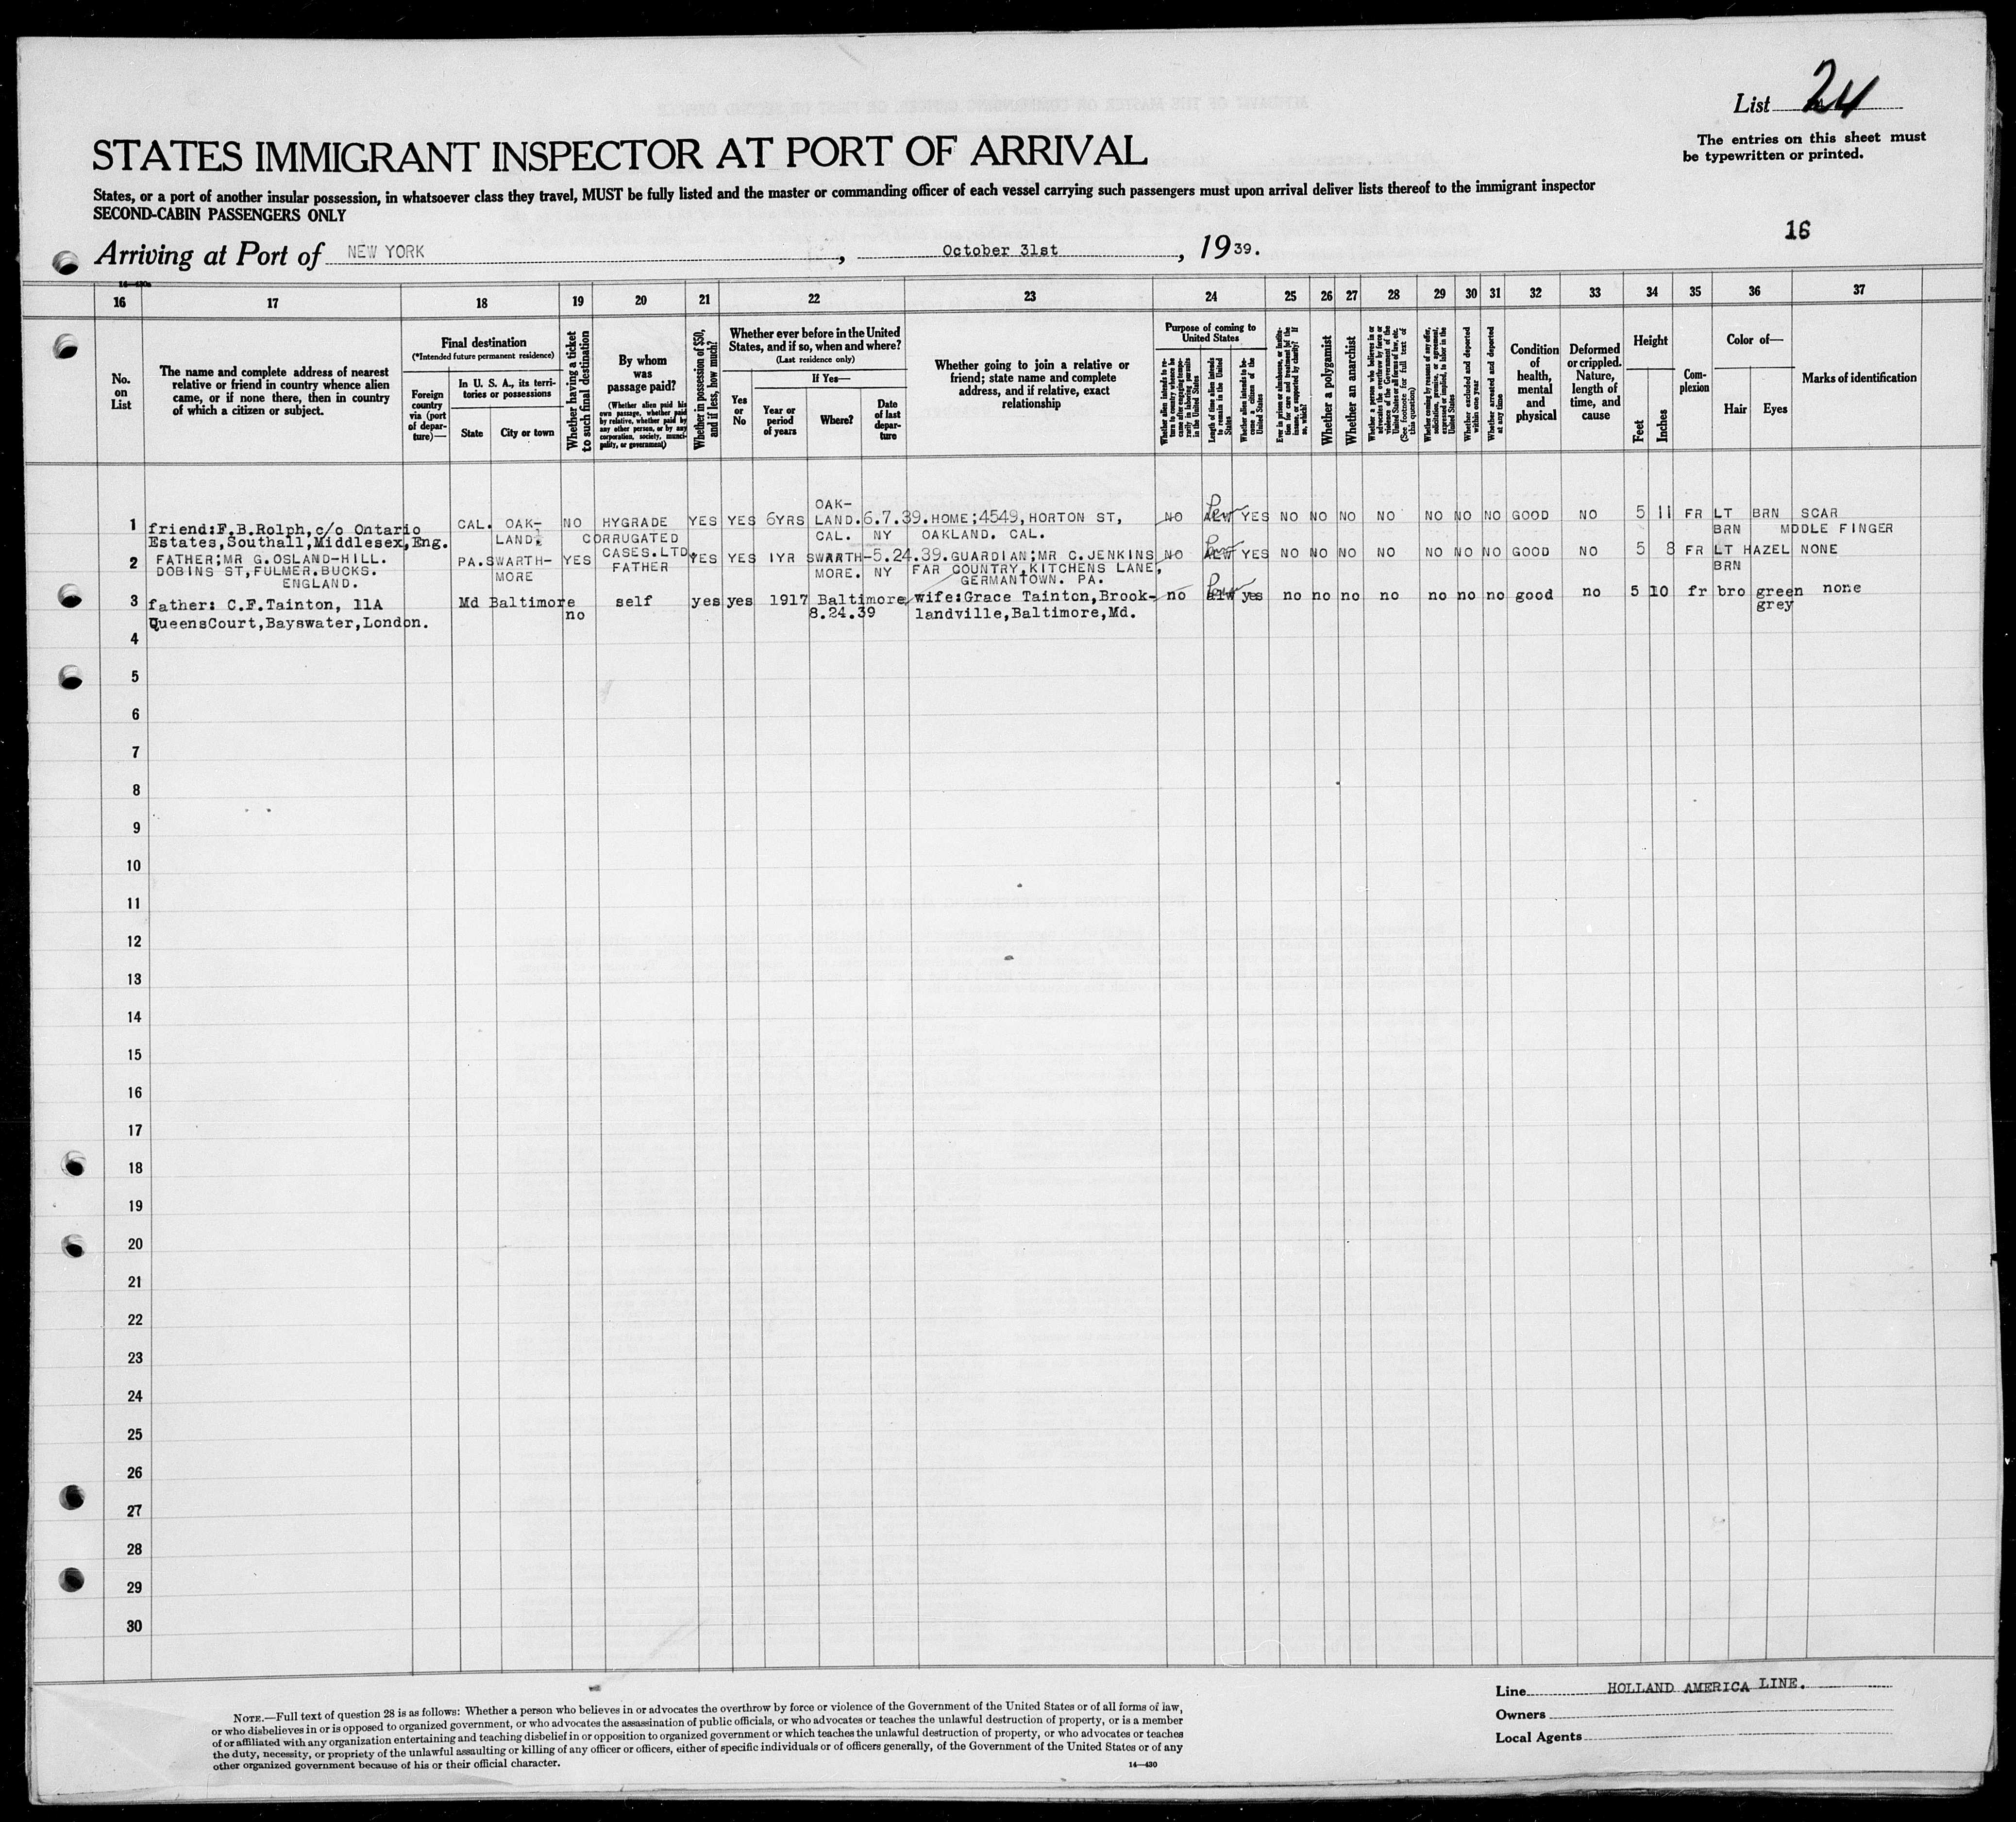 List 24
The entries on this sheet must
be typewritten or printed.
STATES IMMIGRANT INSPECTOR AT PORT OF ARRIVAL
States, or a port of another insular possession, in whatsoever class they travel, MUST be fully listed and the master or commanding officer of each vessel carrying such passengers must upon arrival deliver lists thereof to the immigrant inspector
SECOND-CABIN PASSENGERS ONLY
16
Arriving at Port of NEW YORK, October 31st, 1939.
16 17 18 19 20 21 22 23 24 25 26 27 28 29 30 31 32 33 34 35 36 37
No. on List
The name and complete address of nearest relative or friend in country whence alien came, or if none there, then in country of which a citizen or subject.
Final destination
(*Intended future permanent residence)
Foreign country via (port of departure)—
In U. S. A., its territories or possessions
State
City or town
Whether having a ticket to such final destination
By whom was passage paid?
(Whether alien paid his own passage, whether paid by relative, whether paid by any other person, or by any corporation, society, municipality, or government)
Whether in possession of $50, and if less, how much?
Whether ever before in the United States, and if so, when and where?
(Last residence only)
Yes or No
If Yes—
Year or period of years
Where?
Date of last departure
Whether going to join a relative or friend; state name and complete address, and if relative, exact relationship
Purpose of coming to United States
Whether alien intends to return to country whence he came after engaging temporarily in laboring pursuits in the United States
Length of time alien intends to remain in the United States
Whether alien intends to become a citizen of the United States
Ever in prison or almshouse, or institution for care and treatment of the insane, or supported by charity? If so, which?
Whether a polygamist
Whether an anarchist
Whether a person who believes in or advocates the overthrow by force or violence of the Government of the United States or all forms of law, etc. (See footnote for full text of this question)
Whether coming by reasons of any offer, solicitation, promise, or agreement, expressed or implied, to labor in the United States
Whether excluded and deported within one year
Whether arrested and deported at any time
Condition of health, mental and physical
Deformed or crippled. Nature, length of time, and cause
Height
Feet
Inches
Complexion
Color of—
Hair
Eyes
Marks of identification
OAK-
1 friend:F.B.Rolph,c/o Ontario CAL. OAK- NO HYGRADE YES YES 6YRS LAND. 6.7.39. HOME;4549, HORTON ST, NO YES NO NO NO NO NO NO NO GOOD NO 5 11 FR LT BRN SCAR
Estates,Southall,Middlesex,Eng. LAND. CORRUGATED CAL. NY OAKLAND. CAL. BRN MDDLE FINGER
2 FATHER;MR G.OSLAND-HILL. PA. SWARTH- YES CASES.LTD. YES YES 1YR SWARTH- 5.24.39. GUARDIAN;MR C.JENKINS NO YES NO NO NO NO NO NO NO GOOD NO 5 8 FR LT HAZEL NONE
DOBINS ST,FULMER.BUCKS. MORE FATHER MORE. NY FAR COUNTRY,KITCHENS LANE, BRN
ENGLAND. GERMANTOWN. PA.
3 father: C.F.Tainton, 11A Md Baltimore self yes yes 1917 Baltimore wife:Grace Tainton,Brook- no yes no no no no no no no good no 5 10 fr bro green none
QueensCourt,Bayswater,London. no 8.24.39 landville,Baltimore,Md. grey
4
5
6
7
8
9
10
11
12
13
14
15
16
17
18
19
20
21
22
23
24
25
26
27
28
29
30
NOTE.—Full text of question 28 is as follows: Whether a person who believes in or advocates the overthrow by force or violence of the Government of the United States or of all forms of law,
or who disbelieves in or is opposed to organized government, or who advocates the assassination of public officials, or who advocates or teaches the unlawful destruction of property, or is a member
of or affiliated with any organization entertaining and teaching disbelief in or opposition to organized government or which teaches the unlawful destruction of property, or who advocates or teaches
the duty, necessity, or propriety of the unlawful assaulting or killing of any officer or officers, either of specific individuals or of officers generally, of the Government of the United States or of any
other organized government because of his or their official character.
14—430
Line HOLLAND AMERICA LINE.
Owners
Local Agents